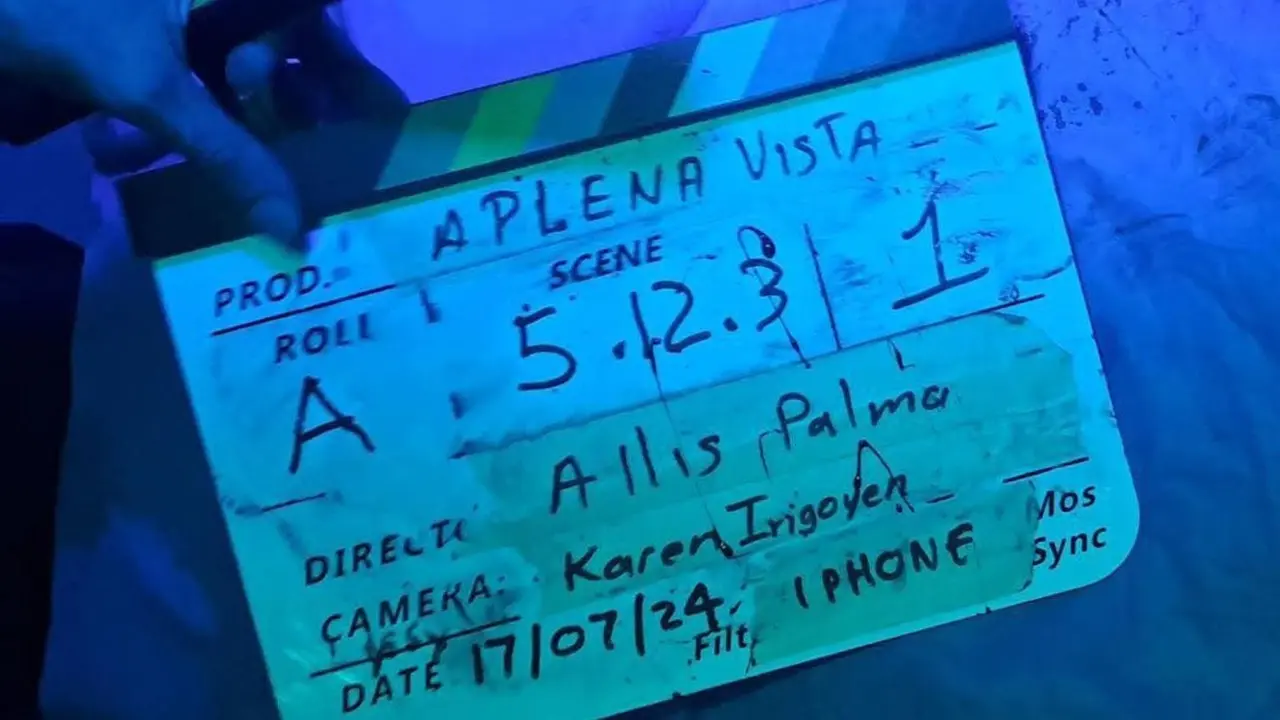 PROD. APLENA VISTA
ROLL SCENE
A 5.12.3 1
Allis Palma
CAMERA: Karen Irigoyen
DATE 17/07/24 Filt. IPHONE
Mos
Sync